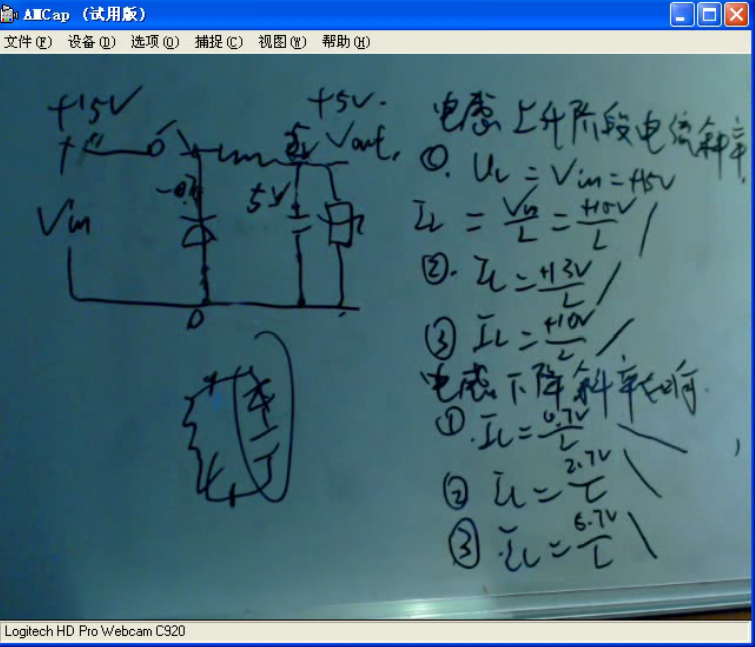 AMCap (试用版)
文件(F) 设备(D) 选项(O) 捕捉(C) 视图(V) 帮助(H)
+15V
+5V.
Vout.
5V
Vin
电感上升阶段电流斜率
①. UL = Vin = +15V
IL = Vin/L = +15V/L
②. IL = +13V/L
③ IL = +10V/L
电感下降斜率如何.
①. IL = 0.7V/L
② IL = 2.7V/L
③ IL = 5.7V/L
Logitech HD Pro Webcam C920